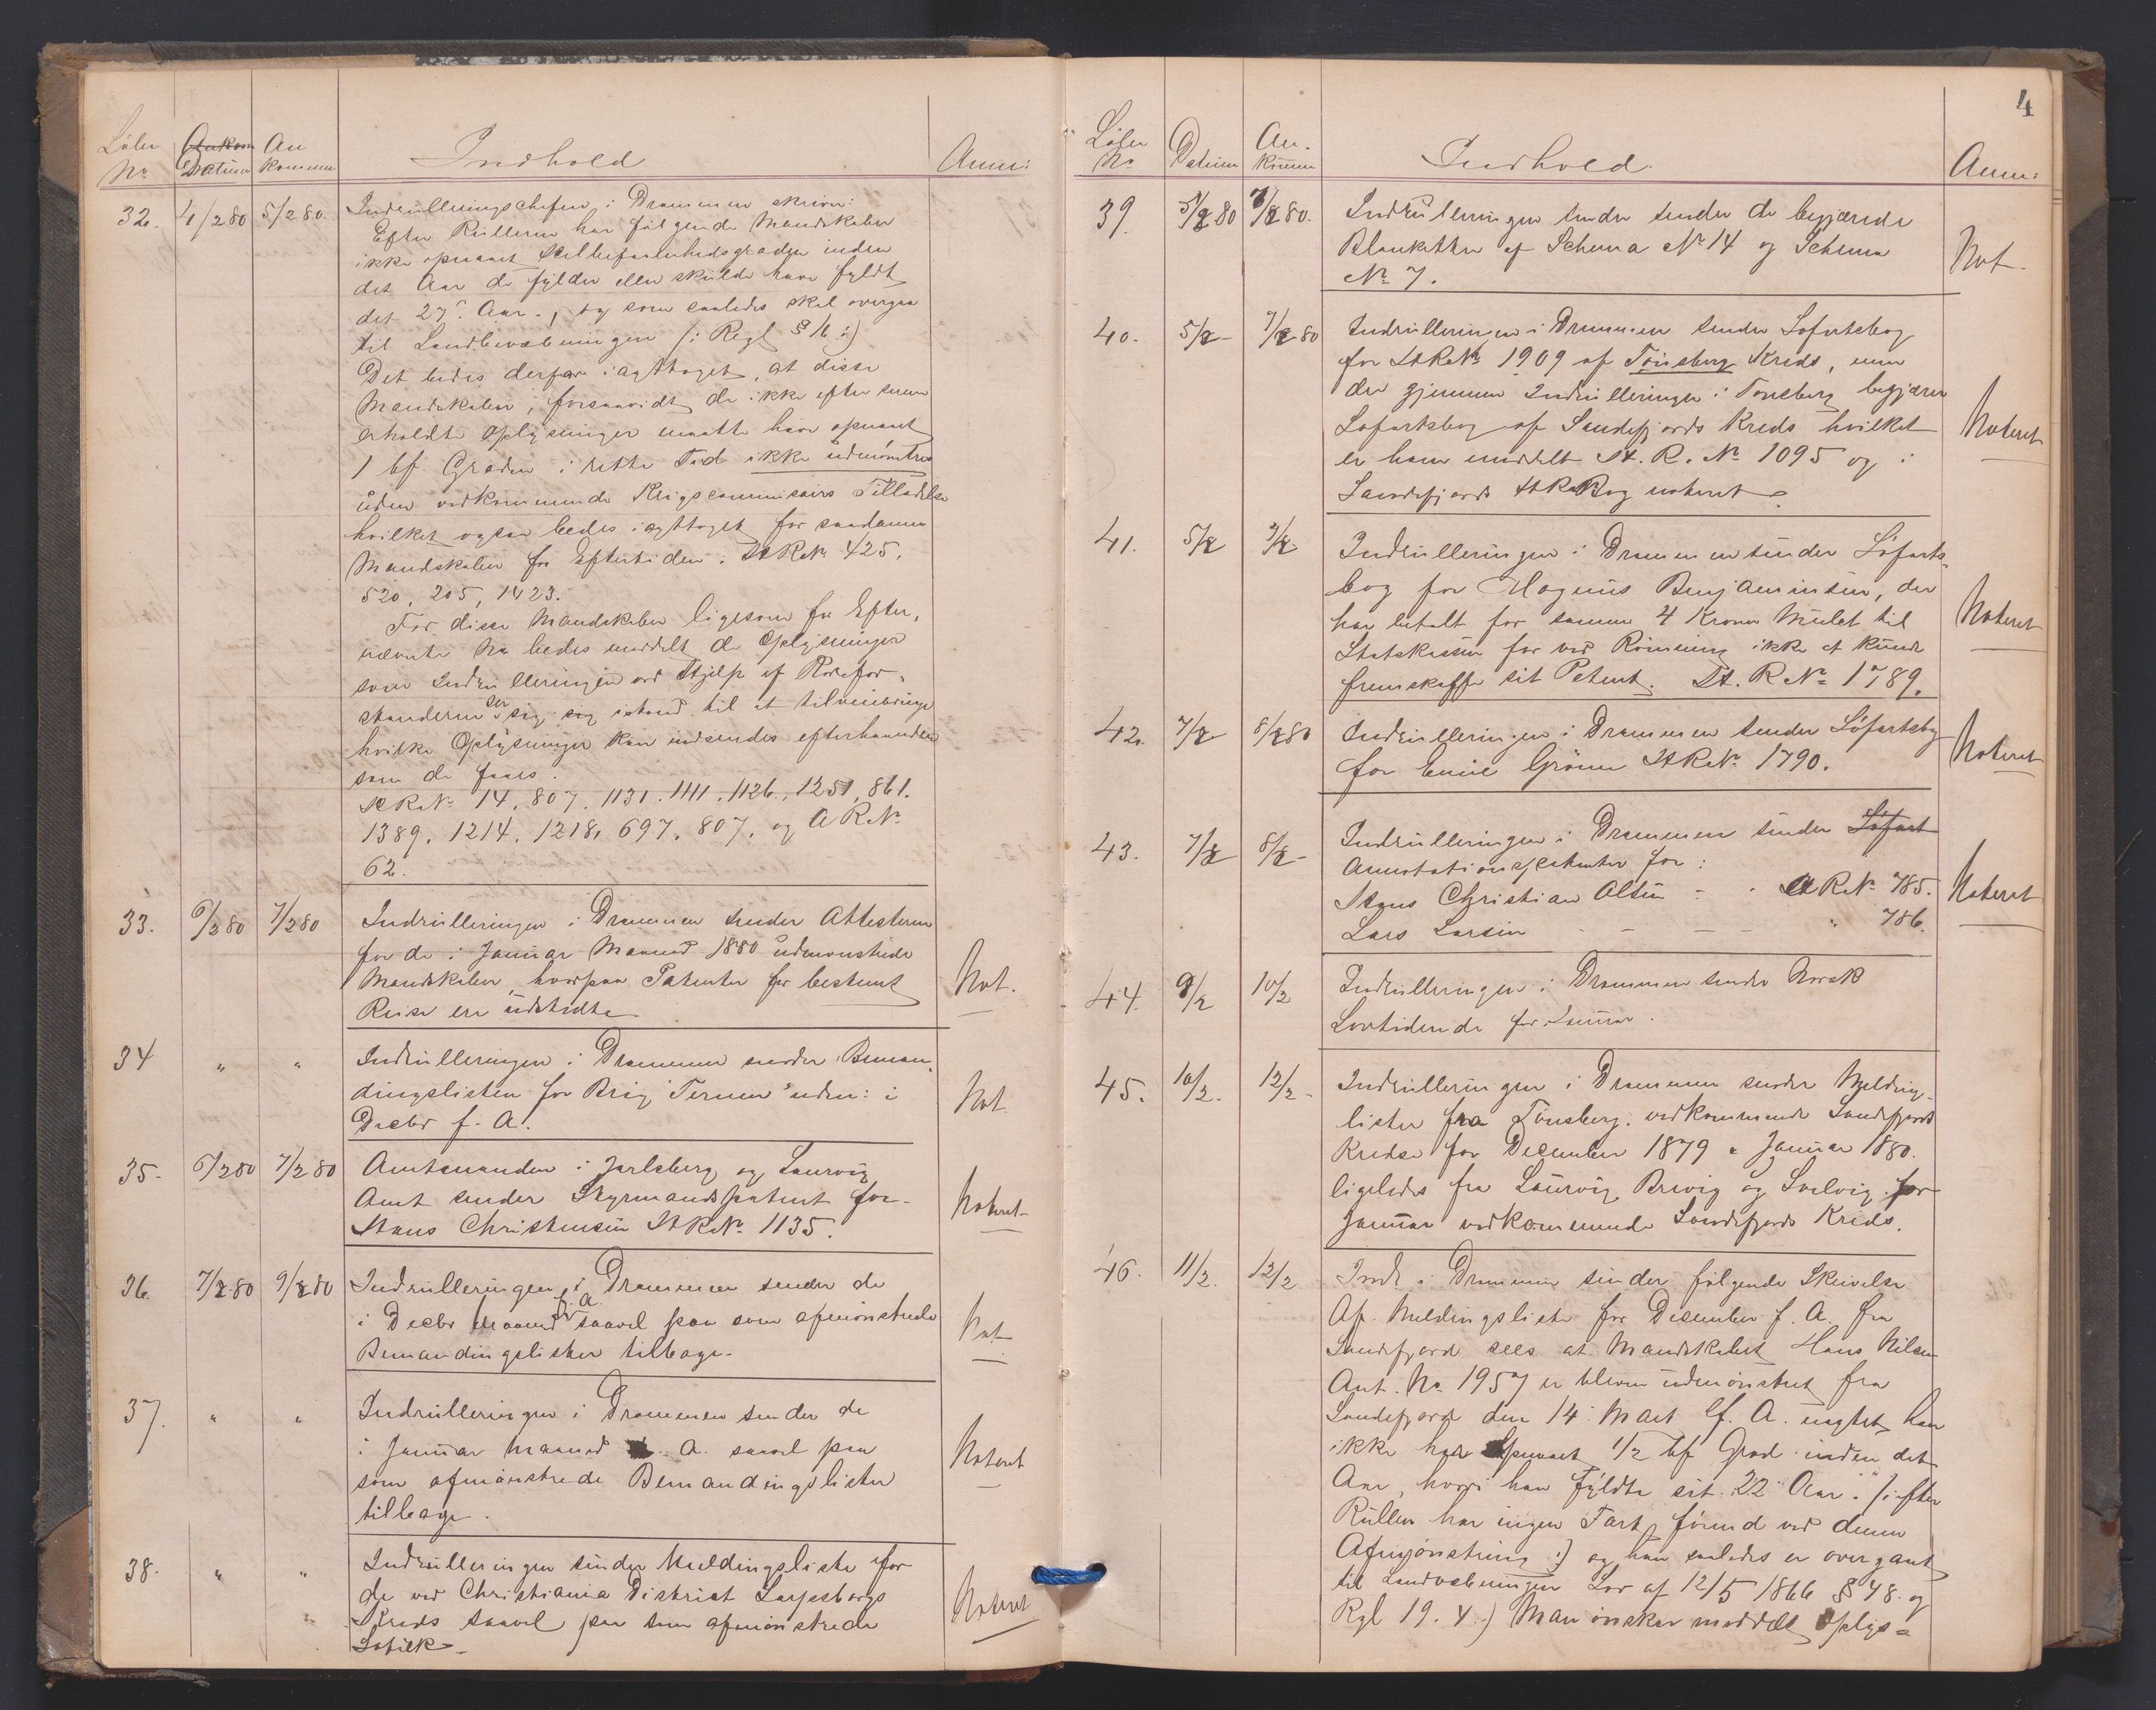 Løbe No | Datum | An kommen | Indhold | Anm:
32. 4/2 80 5/2 80. Indrulleringschefen i Drammen skriver:
Efter Rullerne har følgende Mandskaber
ikke opnaaet Helbefarenhedsgraden inden
det Aar de fylder eller skulde have fyldt
det 27de Aar., og som saaledes skal overgaa
til Landbevæbningen (: Regl § 16 :)
Det bedes derfor iagttaget, at disse
Mandskaber, forsaavidt de ikke efter senere
erholdte Oplysninger maatte have opnaaet
1 bf. Graden i rette Tid ikke udmönstres
uden vedkommende Krigscommisairs Tilladelse
hvilket ogsaa bedes iagttaget for saadanne
Mandskaber for Eftertiden. St R No 425.
520, 205, 1423.
For disse Mandskaber ligesom for Efter,
nævnte No bedes meddelt de Oplysninger
som Indrulleringen ved Hjelp af Rodefor,
standerne ser sig istand til at tilveiebringe
hvilke Oplysninger kan indsendes efterhaanden
som de faaes.
St R No 14, 807, 1131. 1111, 1126, 1251, 861.
1389, 1214, 1218, 697, 807, og A R No
62.
33. 6/2 80 7/2 80 Indrulleringen i Drammen sender Attesterne
for de i Januar Maaned 1880 udmönstrede
Mandskaber, hvorpaa Patenter for bestemt
Reise ere udstedte. Not.
34 " " Indrulleringen i Drammen sender Beman,
dingslisten for Brig "Ternen" uden: i
Decbr f. A. Not.
35. 6/2 80 7/2 80 Amtmanden i Jarlsberg og Laurvig
Amt sender Styrmandspatent for
Hans Christensen St R No 1135. Noteret
36. 7/2 80 9/2 80 Indrulleringen i Drammen sender de
i Decbr Maaned f. A. saavel paa som afmönstrede
Bemandingslister tilbage. Not
37. " " Indrulleringen i Drammen sender de
i Januar Maaned d. A. saavel paa
som afmönstrede Bemandingslister
tilbage. Noteret
38. " " Indrulleringen sender Meldingsliste for
de ved Christiania District Sarpsborgs
Kreds saavel paa som afmönstrede
Søfolk. Noteret
4
Løbe No | Datum | An- kommen | Indhold. | Anm:
39. 5/2 80 7/2 80. Indrulleringen sender de begjærede
Blanketter af Schema No 14 og Schema
No 7. Not.
40. 5/2 - 7/2 80 Indrulleringen i Drammen sender Søfartsbog
for St R No 1909 af Tönsberg Kreds, men
der gjennem Indrulleringen i Tonsberg begjærer
Søfartsbog af Sandefjords Kreds hvilket
er ham meddelt St. R. No 1095 og i
Sandefjords St R Bog noteret. Noteret
41. 5/2 7/2 Indrulleringen i Drammen sender Söfarts-
bog for Magnus Benjaminsen, der
har betalt for samme 4 Kroner Mulct til
Statskassen for ved Römning ikke at kunde
fremskaffe sit Patent. St. R No 1789. Noteret
42. 7/2 8/2 80 Indrulleringen i Drammen sender Söfartsbog
for Emil Grönn St R No 1790. Noteret
43. 7/2 8/2 - Indrulleringen i Drammen sender Søfart
Annotationspatenter for:
Hans Christian Olsen - - A R No 785.
Lars Larsen - - - - " 786. Noteret
44. 9/2 10/2 Indrulleringen i Drammen sender Norsk
Lovtidende for Januar.
45. 10/2. 12/2 - Indrulleringen i Drammen sender Melding-
lister fra Tönsberg. vedkommende Sandefjords
Kreds for December 1879 & Januar 1880.
ligeledes fra Laurvig, Brevig og Svelvig for
Januar vedkommende Sandefjords Kreds.
46. 11/2. 12/2 Indr i Drammen sender følgende Skrivelse
Af Meldingsliste for December f. A. fra
Sandefjord sees at Mandskabet Hans Nilsen
Ant. No. 1957 er bleven udmönstret fra
Sandefjord den 14. Mart f. A. uagtet han
ikke har Opnaaet 1/2 bf Grad inden det
Aar, hvori han fyldte sit 22" Aar. (: efter
Rullen har ingen Fart förend ved denne
Afmönstring :) og han saaledes er overgaaet
til Landvæbningen Lov af 12/5 1866 § 48. og
Rgl 19. 4.:) Man önsker meddelt Oplys=